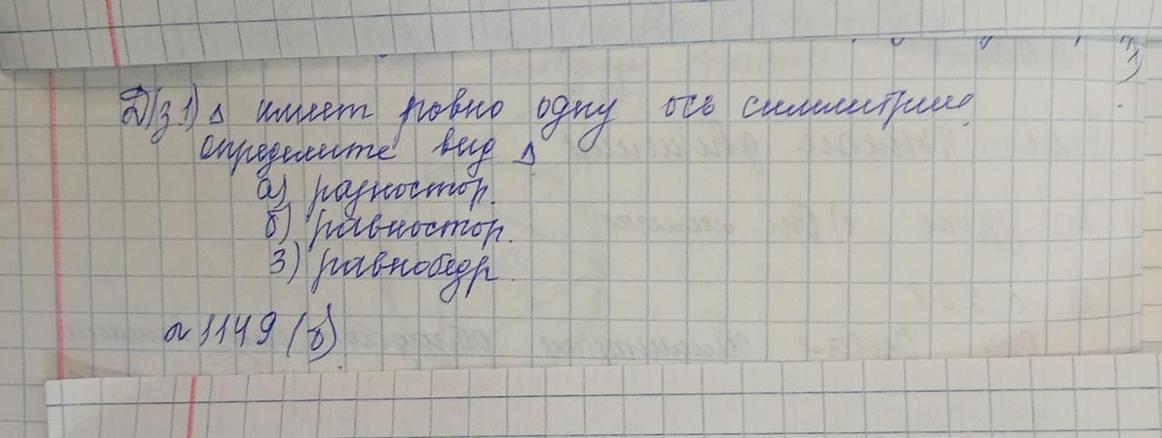 Д/з 1) △ имеет ровно одну ось симмитрии.
определите вид △
а) разностор.
б) равностор.
3) равнобедр.
№ 1149 (б)